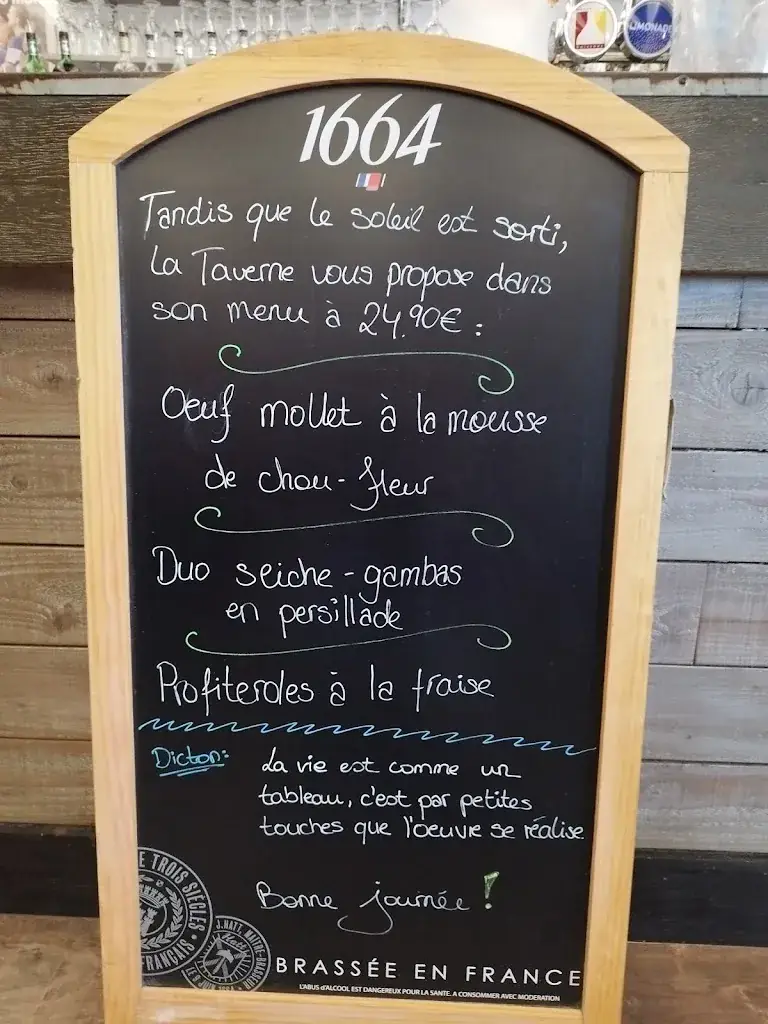 LIMONADE
1664
Tandis que le soleil est sorti,
La Taverne vous propose dans
son menu à 24.90€ :
Oeuf mollet à la mousse
de chou-fleur
Duo seiche-gambas
en persillade
Profiteroles à la fraise
Dicton:
La vie est comme un
tableau, c'est par petites
touches que l'oeuvre se réalise
Bonne journée !
E TROIS SIECLES
FRANÇAIS
J.HATT, MAITRE-BRASSEUR
Hatt
BRASSÉE EN FRANCE
L'ABUS d'ALCOOL EST DANGEREUX POUR LA SANTE. A CONSOMMER AVEC MODERATION